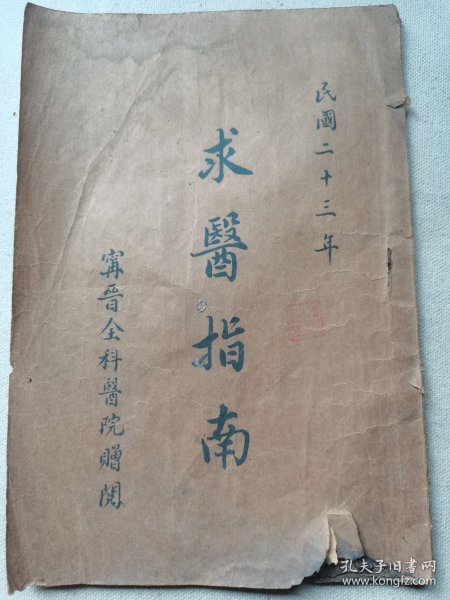 民國二十三年
求醫指南
甯晉全科醫院贈閱
孔夫子旧书网
www.kongfz.com